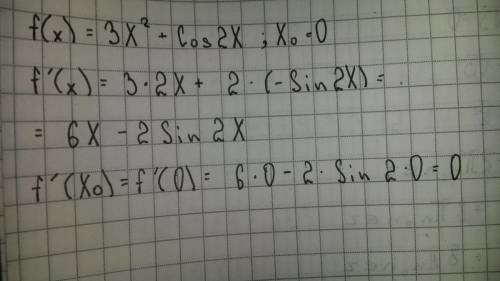 f(x) = 3x² + Cos2x ; x₀ = 0
f'(x) = 3·2x + 2·(-Sin2x) =
= 6x - 2Sin2x
f'(x₀) = f'(0) = 6·0 - 2·Sin2·0 = 0